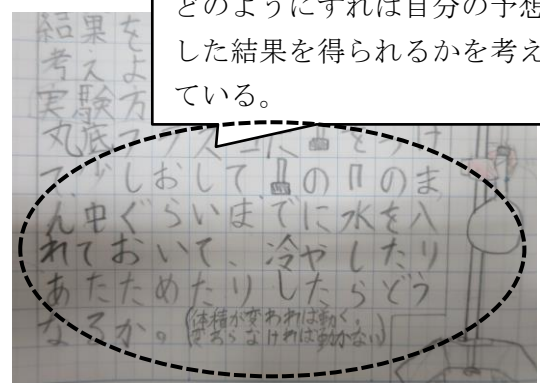 どのようにすれば自分の予想
した結果を得られるかを考え
ている。
結果を
考えよ
実験方
丸底フラスコに
少しおして の のま
ん中ぐらいまでに水を入
れておいて、冷やしたり
あたためたりしたらどう
なるか。(体積が変われば動く、
変わらなければ動かない)